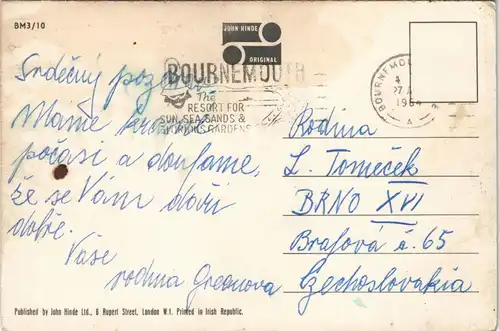 BM3/10
JOHN HINDE
ORIGINAL
BOURNEMOUTH
The
RESORT FOR
SUN, SEA, SANDS &
GLORIOUS GARDENS
BOURNEMOU
4
27
1964
A
Srdečný poz
Máme
počasí a doufáme,
že se Vám daří
dobře.
Vaše
rodina Greenova
Rodina
L. Tomeček
BRNO XVI
Brafová č. 65
Czechoslovakia
Published by John Hinde Ltd., 6 Rupert Street, London W.1. Printed in Irish Republic.